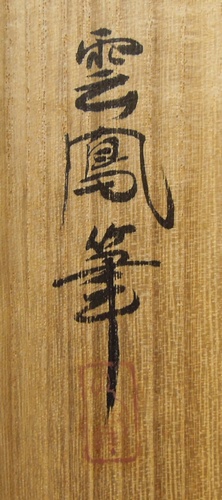 雲鳳筆